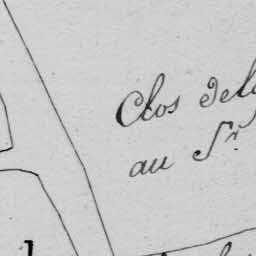 Clos dela
au Sr.